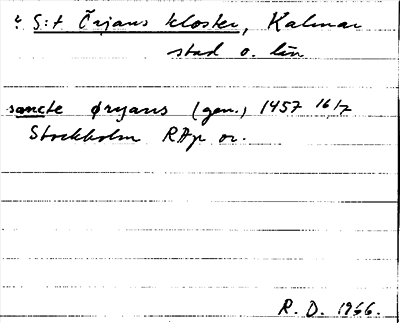 S:t Örjans kloster, Kalmar
stad o. län
sancte øryans (gen.) 1457 16/7
Stockholm RAp or.
R. D. 1966.